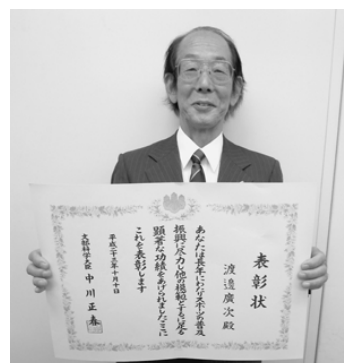 表彰状
渡邉廣次殿
あなたは長年にわたりスポーツの普及
振興に尽力し他の模範とするに足る
顕著な功績をあげられましたここに
これを表彰します
平成二十三年十月十日
文部科学大臣 中川正春